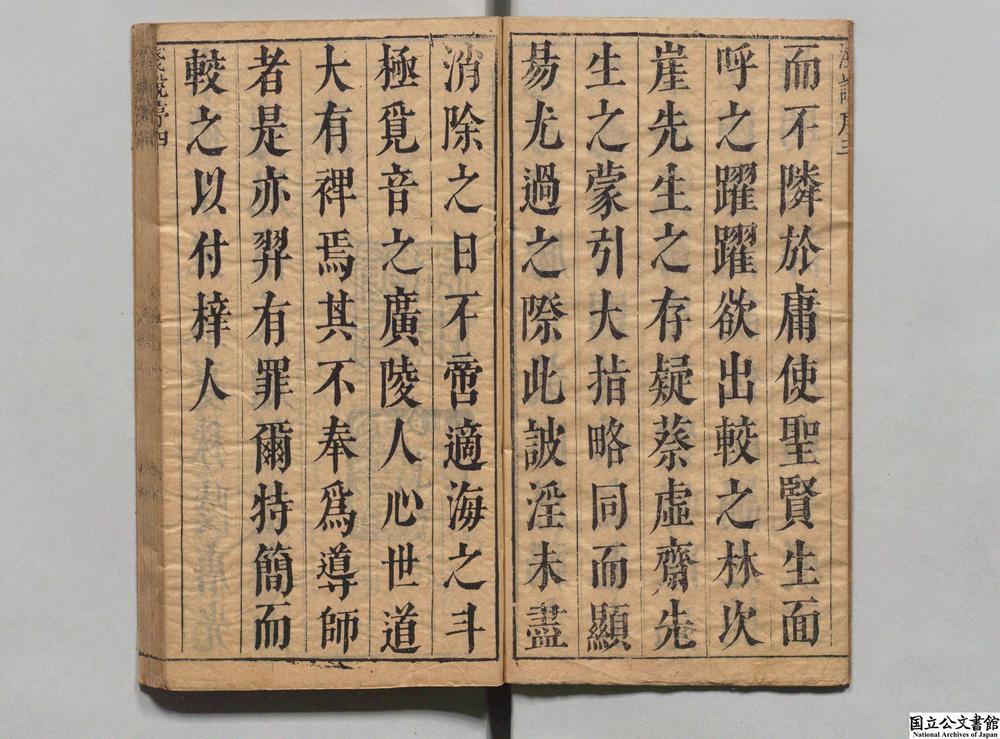 而不隣於庸使聖賢生面
呼之躍躍欲出較之林次
崖先生之存疑蔡虛齋先
生之蒙引大指略同而顯
易尤過之際此詖淫未盡
消除之日不啻適海之斗
極覓音之廣陵人心世道
大有裨焉其不奉爲導師
者是亦羿有罪爾特簡而
較之以付梓人
淺説序四
国立公文書館
National Archives of Japan